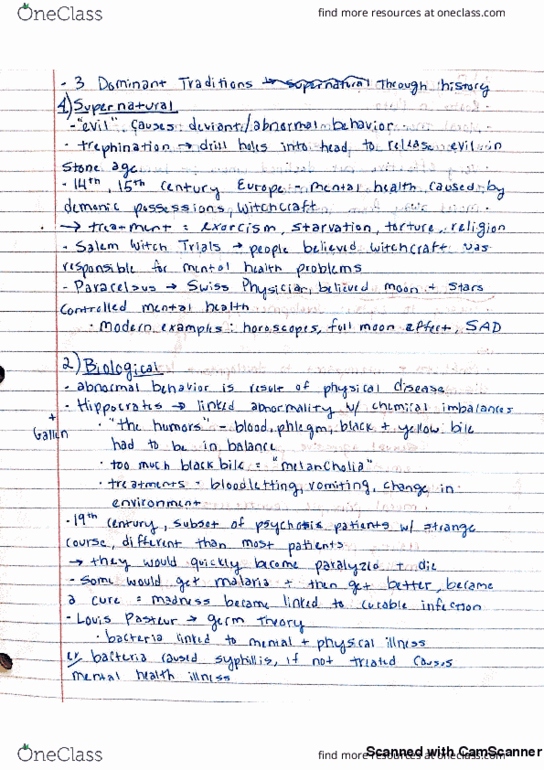 OneClass
find more resources at oneclass.com
- 3 Dominant Traditions supernatural Through history
1) Supernatural
- "evil" causes deviant/abnormal behavior
- trephination → drill holes into head to release evil in
Stone age
- 14th, 15th century Europe - mental health caused by
demonic possessions, witchcraft
→ treatment = exorcism, starvation, torture, religion
- Salem Witch Trials → people believed witchcraft was
responsible for mental health problems
- Paracelsus → Swiss Physician, believed moon + stars
controlled mental health
• Modern examples: horoscopes, full moon effect, SAD
2) Biological
- abnormal behavior is result of physical disease
- Hippocrates → linked abnormality w/ chemical imbalances
+ Gallen
• "the humors" - blood, phlegm, black + yellow bile
had to be in balance
• too much black bile = "melancholia"
• treatments = bloodletting, vomiting, change in
environment
- 19th century, subset of psychosis patients w/ strange
course, different than most patients
→ they would quickly become paralyzed + die
- some would get malaria + then get better, became
a cure = madness became linked to curable infection
- Louis Pasteur → germ theory
• bacteria linked to mental + physical illness
ex/ bacteria caused syphillis, if not treated causes
mental health illness
OneClass
find more resources at oneclass.com
Scanned with CamScanner